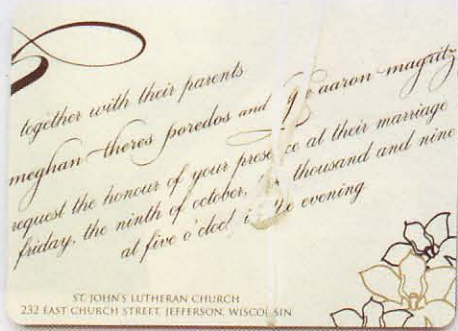 together with their parents
meghan theres poredos and aaron magritz
request the honour of your presence at their marriage
friday, the ninth of october, thousand and nine
at five o'clock evening
ST. JOHN'S LUTHERAN CHURCH
232 EAST CHURCH STREET, JEFFERSON, WISCONSIN